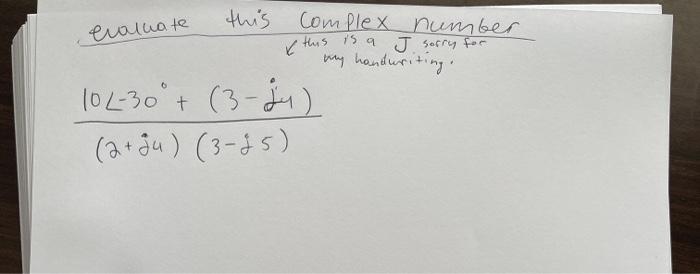 evaluate this complex number
↙ this is a J sorry for
my handwriting.
10∠-30° + (3-j4)
(2+j4) (3-j5)